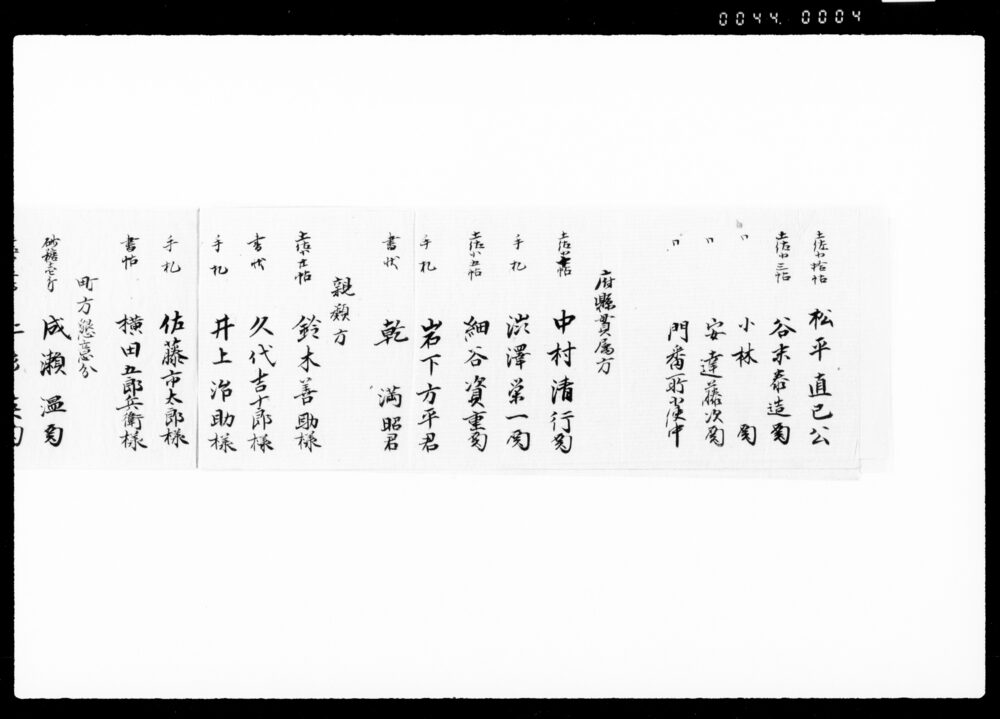 0044.0004
土佐中拾帖 松平直已公
土佐中三帖 谷末泰造殿
〃 小林 殿
〃 安達藤次殿
〃 門番所小使中
府縣貫属方
土佐 帖 中村清行殿
手札 渋澤栄一殿
土佐小五帖 細谷資重殿
手札 岩下方平君
書状 乾 満昭君
親類方
土佐小 帖 鈴木善助様
書状 久代吉十郎様
手札 井上治助様
手札 佐藤市太郎様
書帖 横田五郎兵衛様
町方懇意分
砂糖壱斤 成瀬温殿